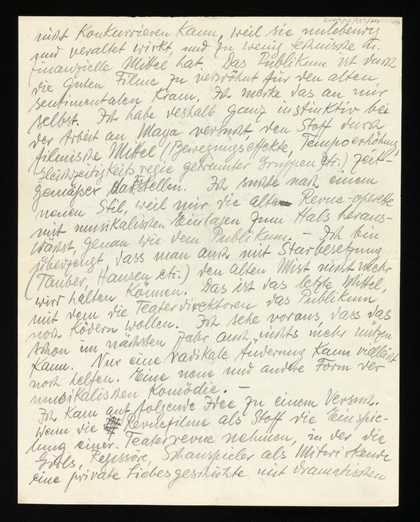 nicht konkurrieren kann, weil sie unlebendig
und veraltet wirkt, und zu wenig technische u.
finanzielle Mittel hat. Das Publikum ist durch
die guten Filme zu verwöhnt für den alten
sentimentalen Kram. Ich merke das an mir
selbst. Ich habe deshalb ganz instinktiv bei
der Arbeit an Maya versucht den Stoff durch
filmische Mittel (Bewegungseffekte, Tempoerhöhung,
Gleichzeitigkeitsregie getrennter Gruppen etc.) zeit-
gemässer darstellen. Ich suchte nach einem
neuen Stil, weil mir die alte Revue-operette
mit musikalischen Einlagen zum Hals heraus-
wächst, genau wie dem Publikum. – Ich bin
überzeugt dass man auch mit Starbesetzung
(Tauber, Hansen etc.) den alten Mist nicht mehr
wird halten können. Das ist das letzte Mittel,
mit dem die Teaterdirektoren das Publikum
noch ködern wollen. Ich sehe voraus, dass das
schon im nächsten Jahr auch nichts mehr nützen
kann. Nur eine radikale Änderung kann vielleicht
noch helfen. Eine neue und andre Form der
musikalischen Komödie. –
Ich kam auf folgende Idee zu einem Versuch.
Wenn die Revuefilme als Stoff die Einspie-
lung einer Teaterrevue nehmen, in der die
Girls, Regisseure, Schauspieler als Mitwirkende
eine private Liebesgeschichte mit dramatischen